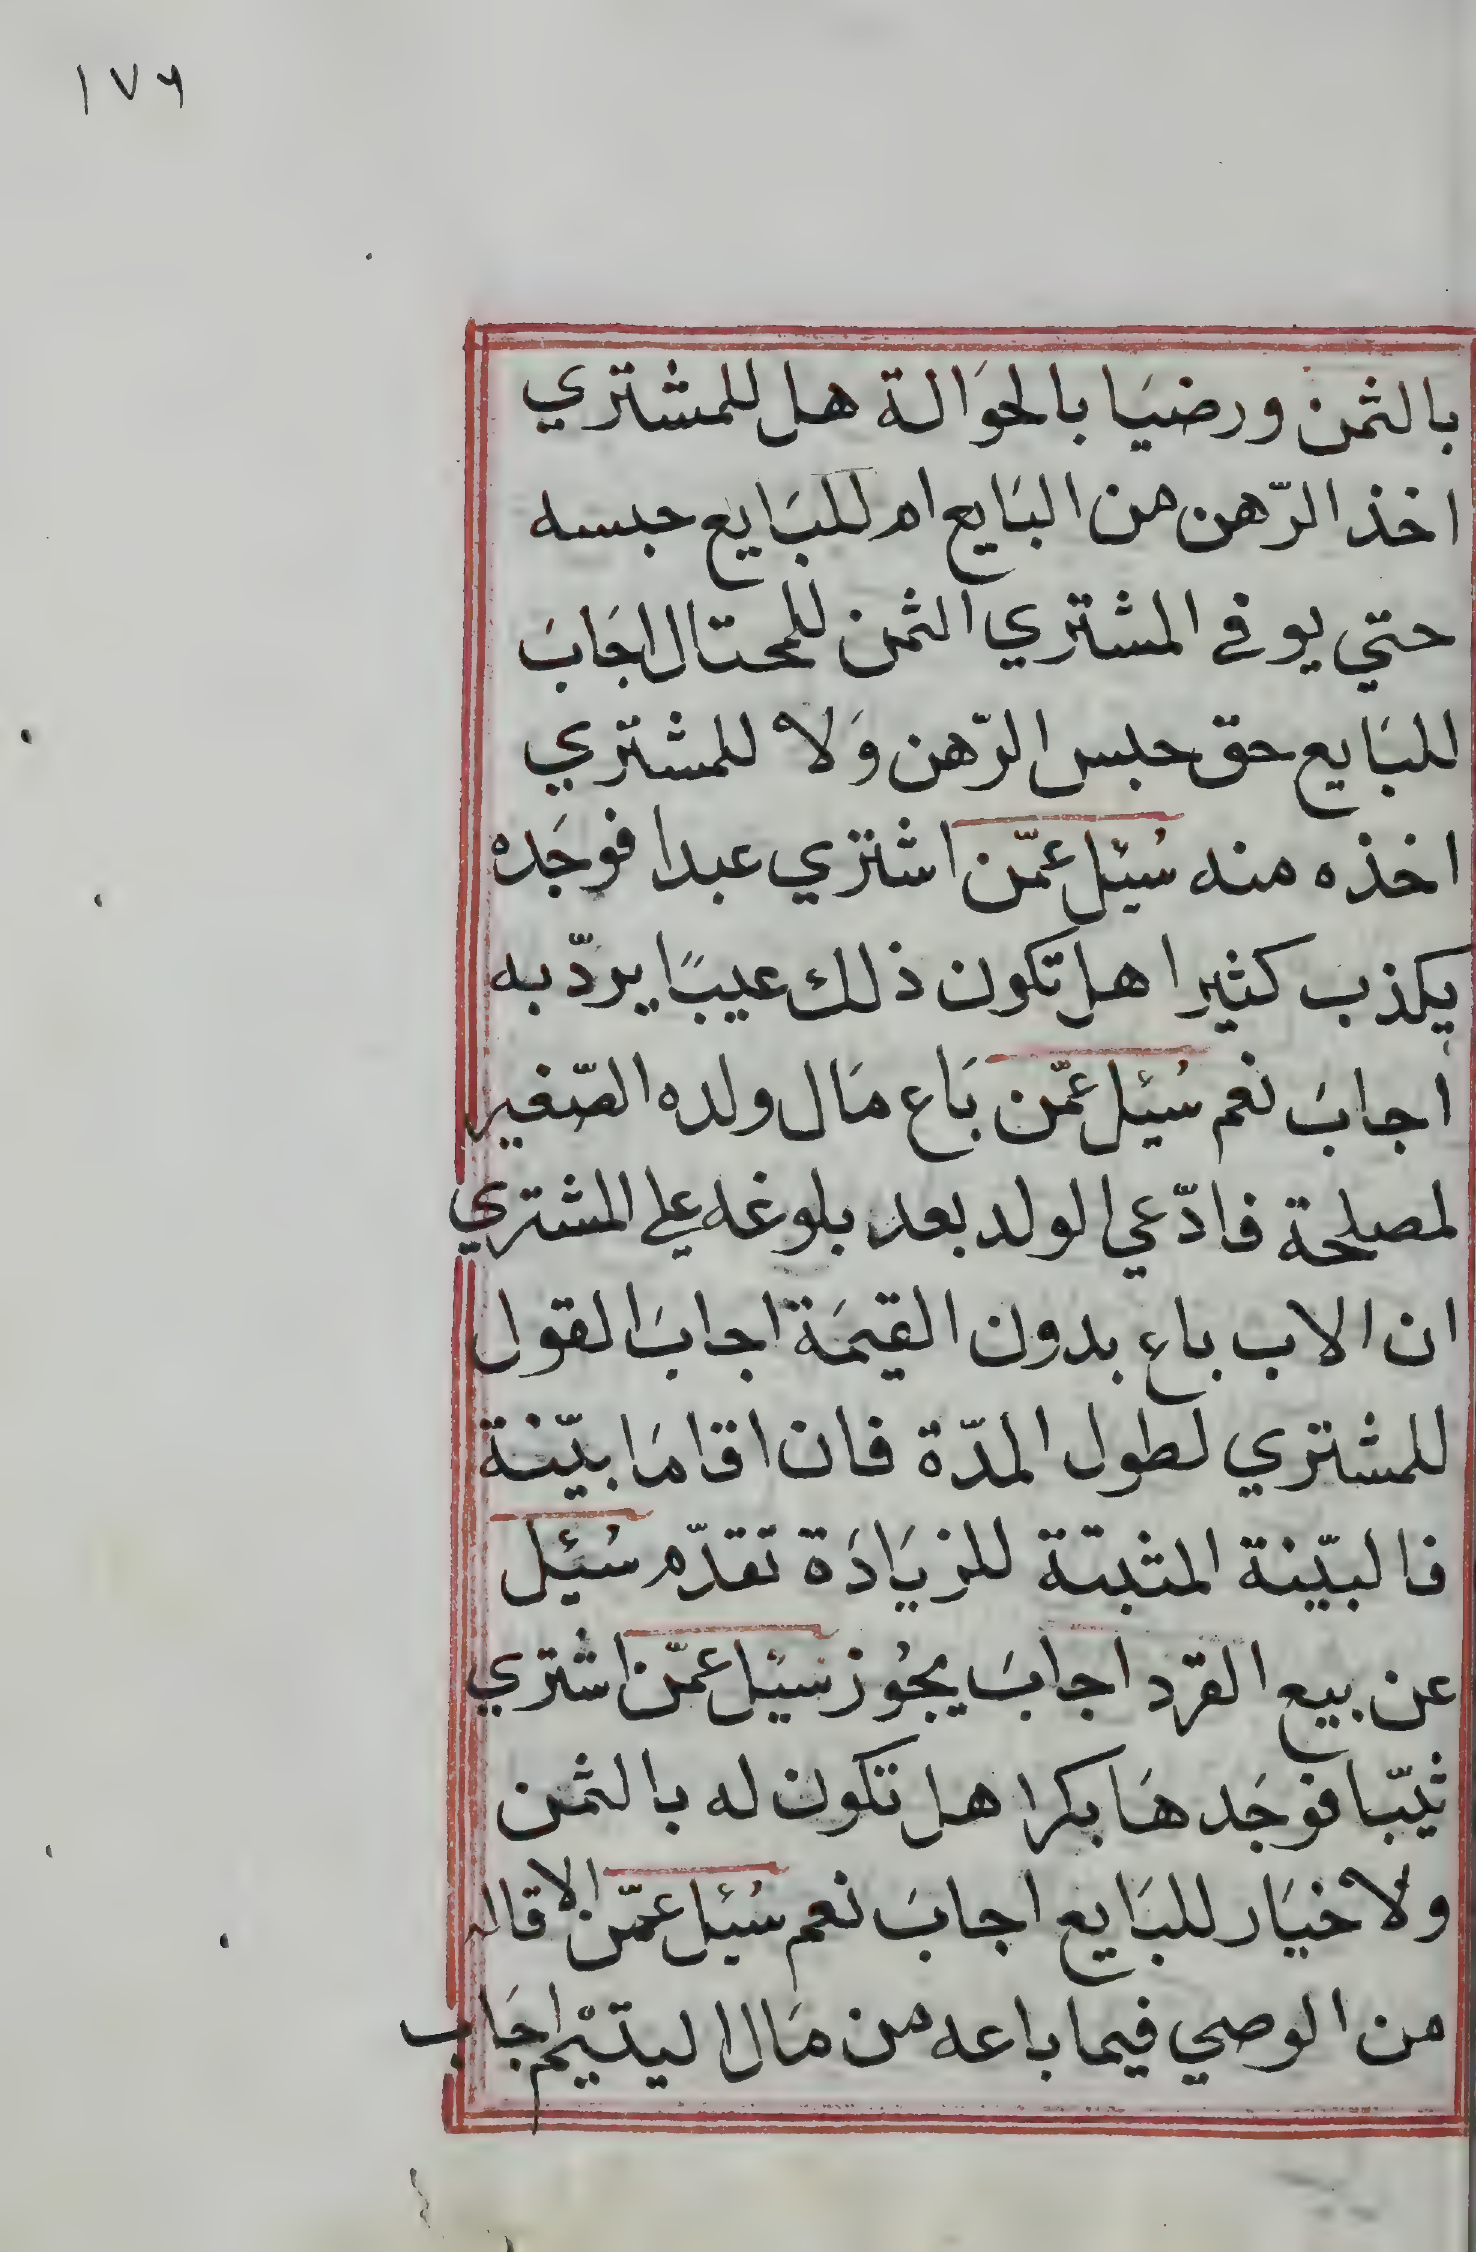 ١٧٦
بالثمن ورضيَا بالحوَالة هل للمشتري
اخذ الرّهن من البَايع ام للبَايع حبسه
حتي يوفي المشتري الثمن للمحتال اجَابَ
للبَايع حق حبس الرّهن وَلا للمشتري
اخذه منه سُئِل عمّن اشتري عبدا فوجَده
يكذب كثيرا هل تكون ذلك عيبًا يردّ به
اجابَ نعم سُئِل عمّن بَاع مَال ولده الصّغير
لمصلحة فادّعي الولد بعد بلوغه علي المشتري
ان الاب باع بدون القيمَة اجابَ القول
للمشتري لطول المدّة فان اقامَا بيّنة
فالبيّنة المثبتة للزيَادَة تقدّم سُئِل
عن بيع القرد اجابَ يجُوز سئِل عمّن اشتري
ثيّبا فوجَدهَا بكرا هل تكون له بالثمن
ولا خيَار للبَايع اجابَ نعم سُئِل عمّن الاقاله
من الوصي فيما باعه من مَال اليتيْم اجَاب